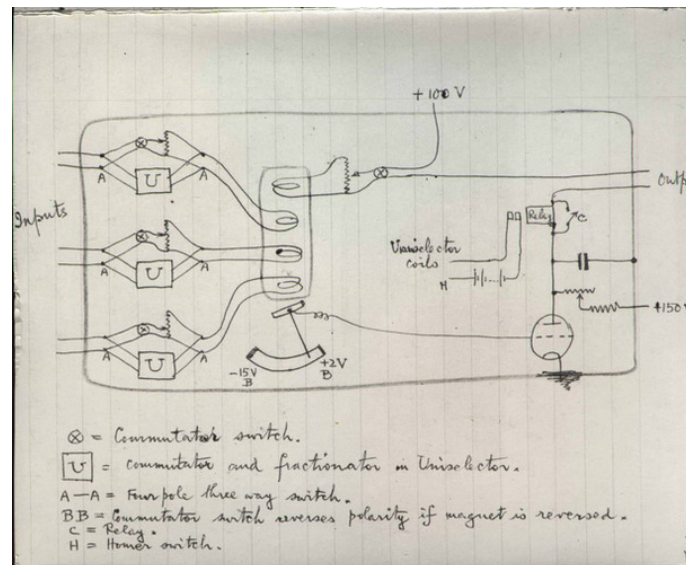 +100 V
A
U
A
Inputs
A
U
A
A
U
A
Relay
C
Uniselector
coils
H
-15V
B
+2V
B
+150V
⊗ = Commutator switch.
U = commutator and fractionator in Uniselector.
A—A = Four pole three way switch.
BB = Commutator switch reverses polarity if magnet is reversed.
C = Relay.
H = Homer switch.